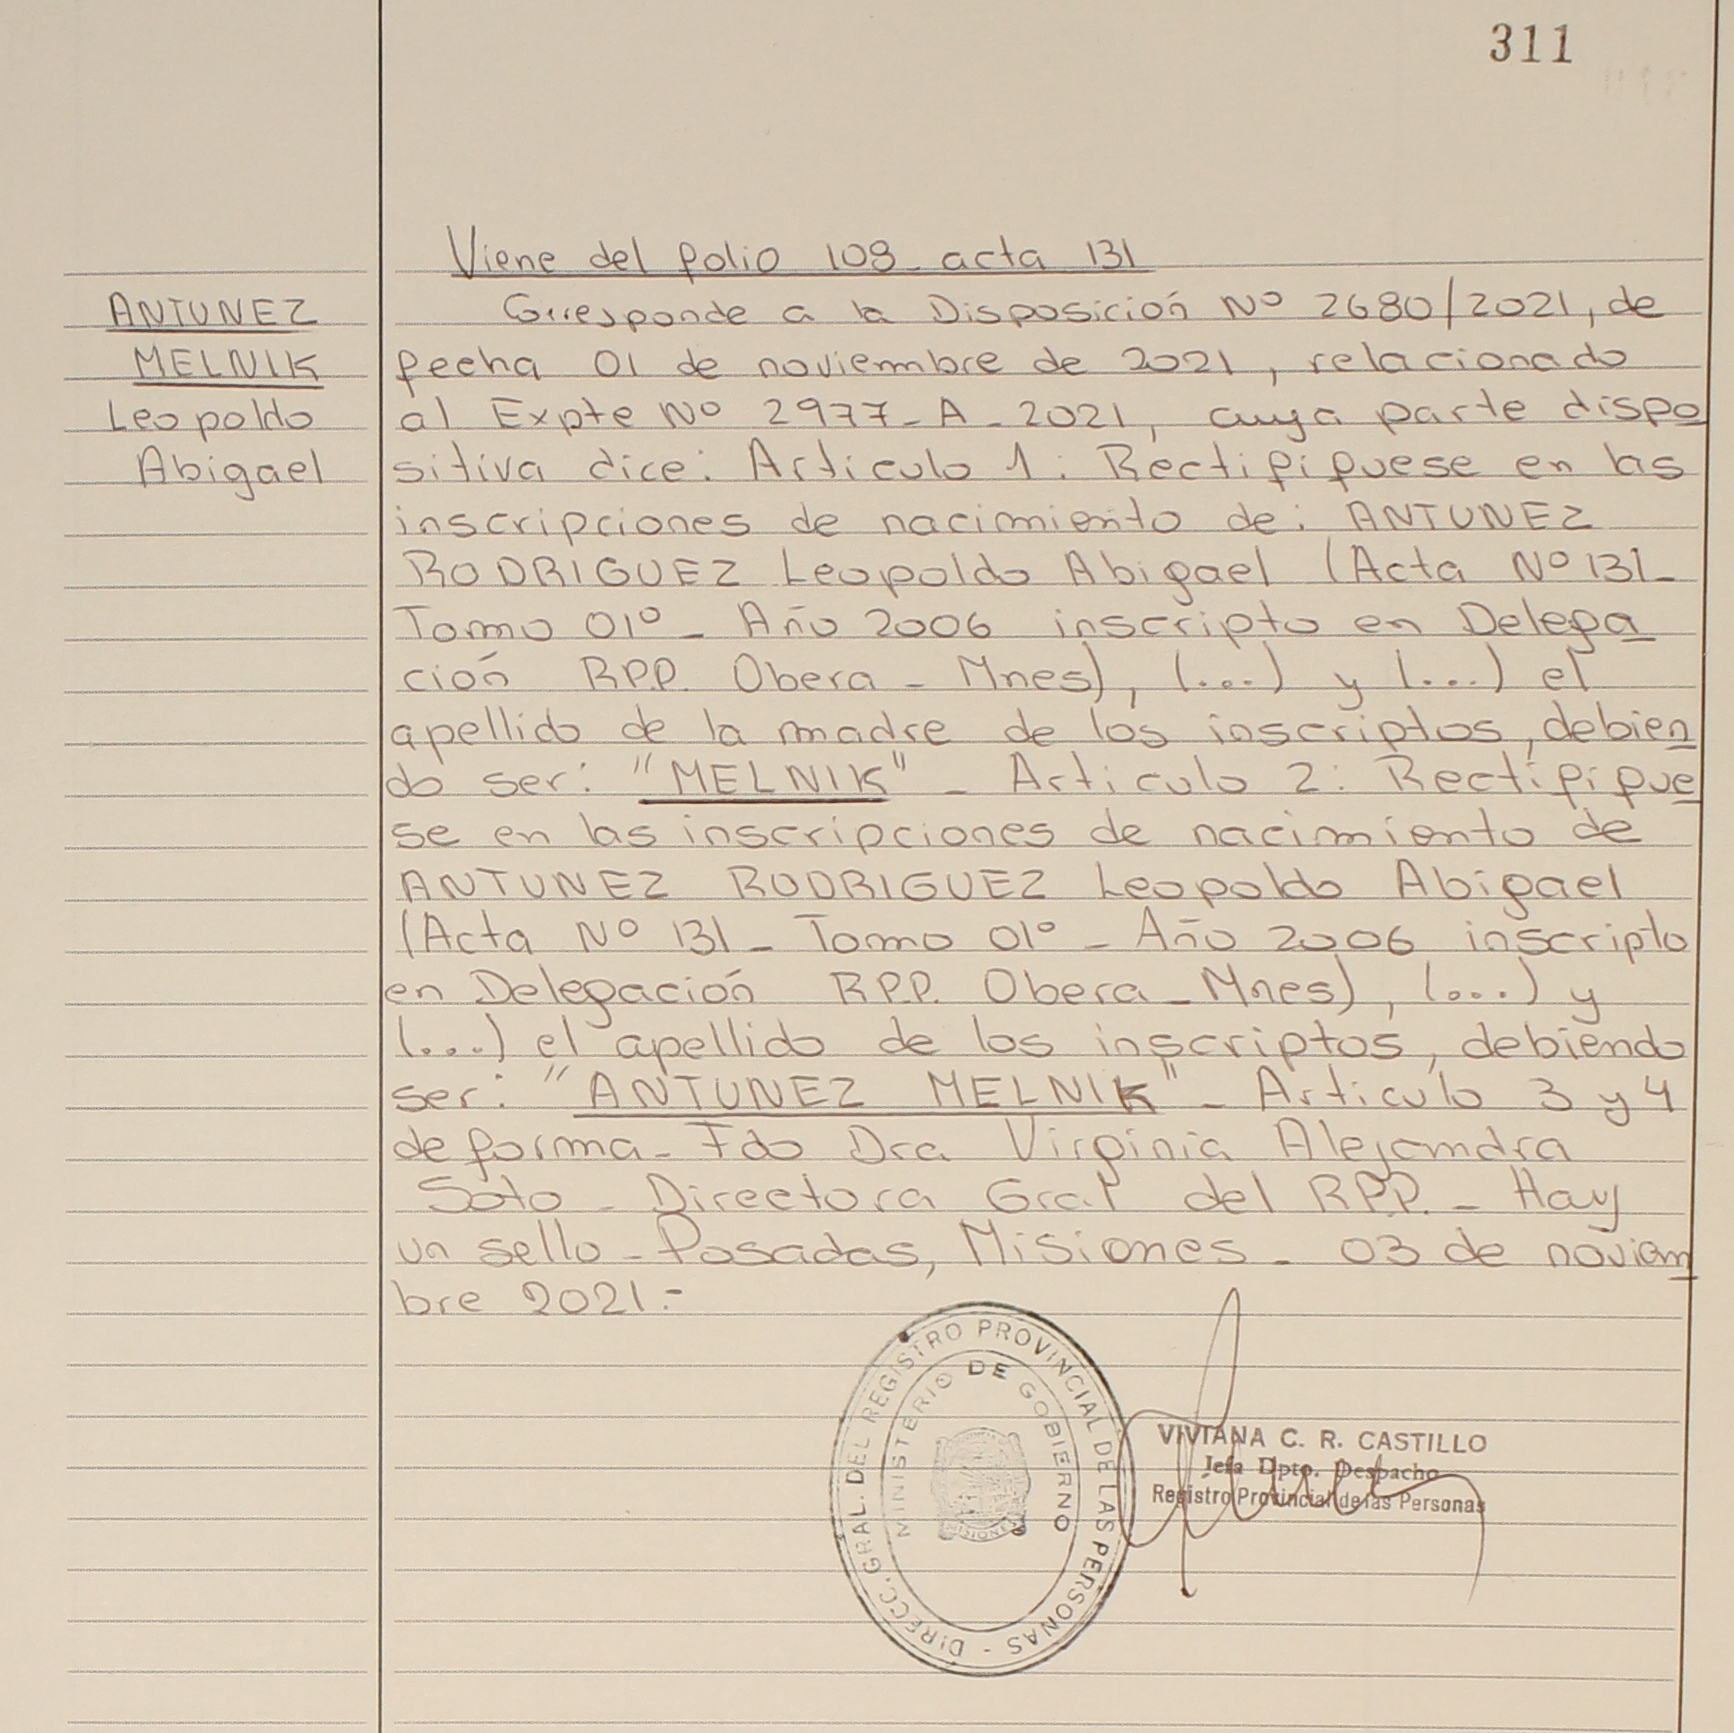 311
Viene del folio 108 - acta 131
ANTUNEZ
MELNIK
Leopoldo
Abigael
Corresponde a la Disposición Nº 2680/2021, de
fecha 01 de noviembre de 2021, relacionado
al Expte Nº 2977 - A - 2021, cuya parte dispo
sitiva dice: Articulo 1: Rectifíquese en las
inscripciones de nacimiento de: ANTUNEZ
RODRIGUEZ Leopoldo Abigael (Acta Nº 131 -
Tomo 01º - Año 2006 inscripto en Delega
ción R.P.P. Obera - Mnes), (...) y (...) el
apellido de la madre de los inscriptos, debien
do ser: "MELNIK" - Articulo 2: Rectifíque
se en las inscripciones de nacimiento de
ANTUNEZ RODRIGUEZ Leopoldo Abigael
(Acta Nº 131 - Tomo 01º - Año 2006 inscripto
en Delegación R.P.P. Obera - Mnes), (...) y
(...) el apellido de los inscriptos, debiendo
ser: "ANTUNEZ MELNIK" - Articulo 3 y 4
de forma - Fdo Dra Virginia Alejandra
Soto - Directora Gral del R.P.P. - Hay
un sello - Posadas, Misiones - 03 de noviem
bre 2021.-
DIRECC. GRAL. DEL REGISTRO PROVINCIAL DE LAS PERSONAS -
MINISTERIO DE GOBIERNO
MISIONES
VIVIANA C. R. CASTILLO
Jefa Dpto. Despacho
Registro Provincial de las Personas